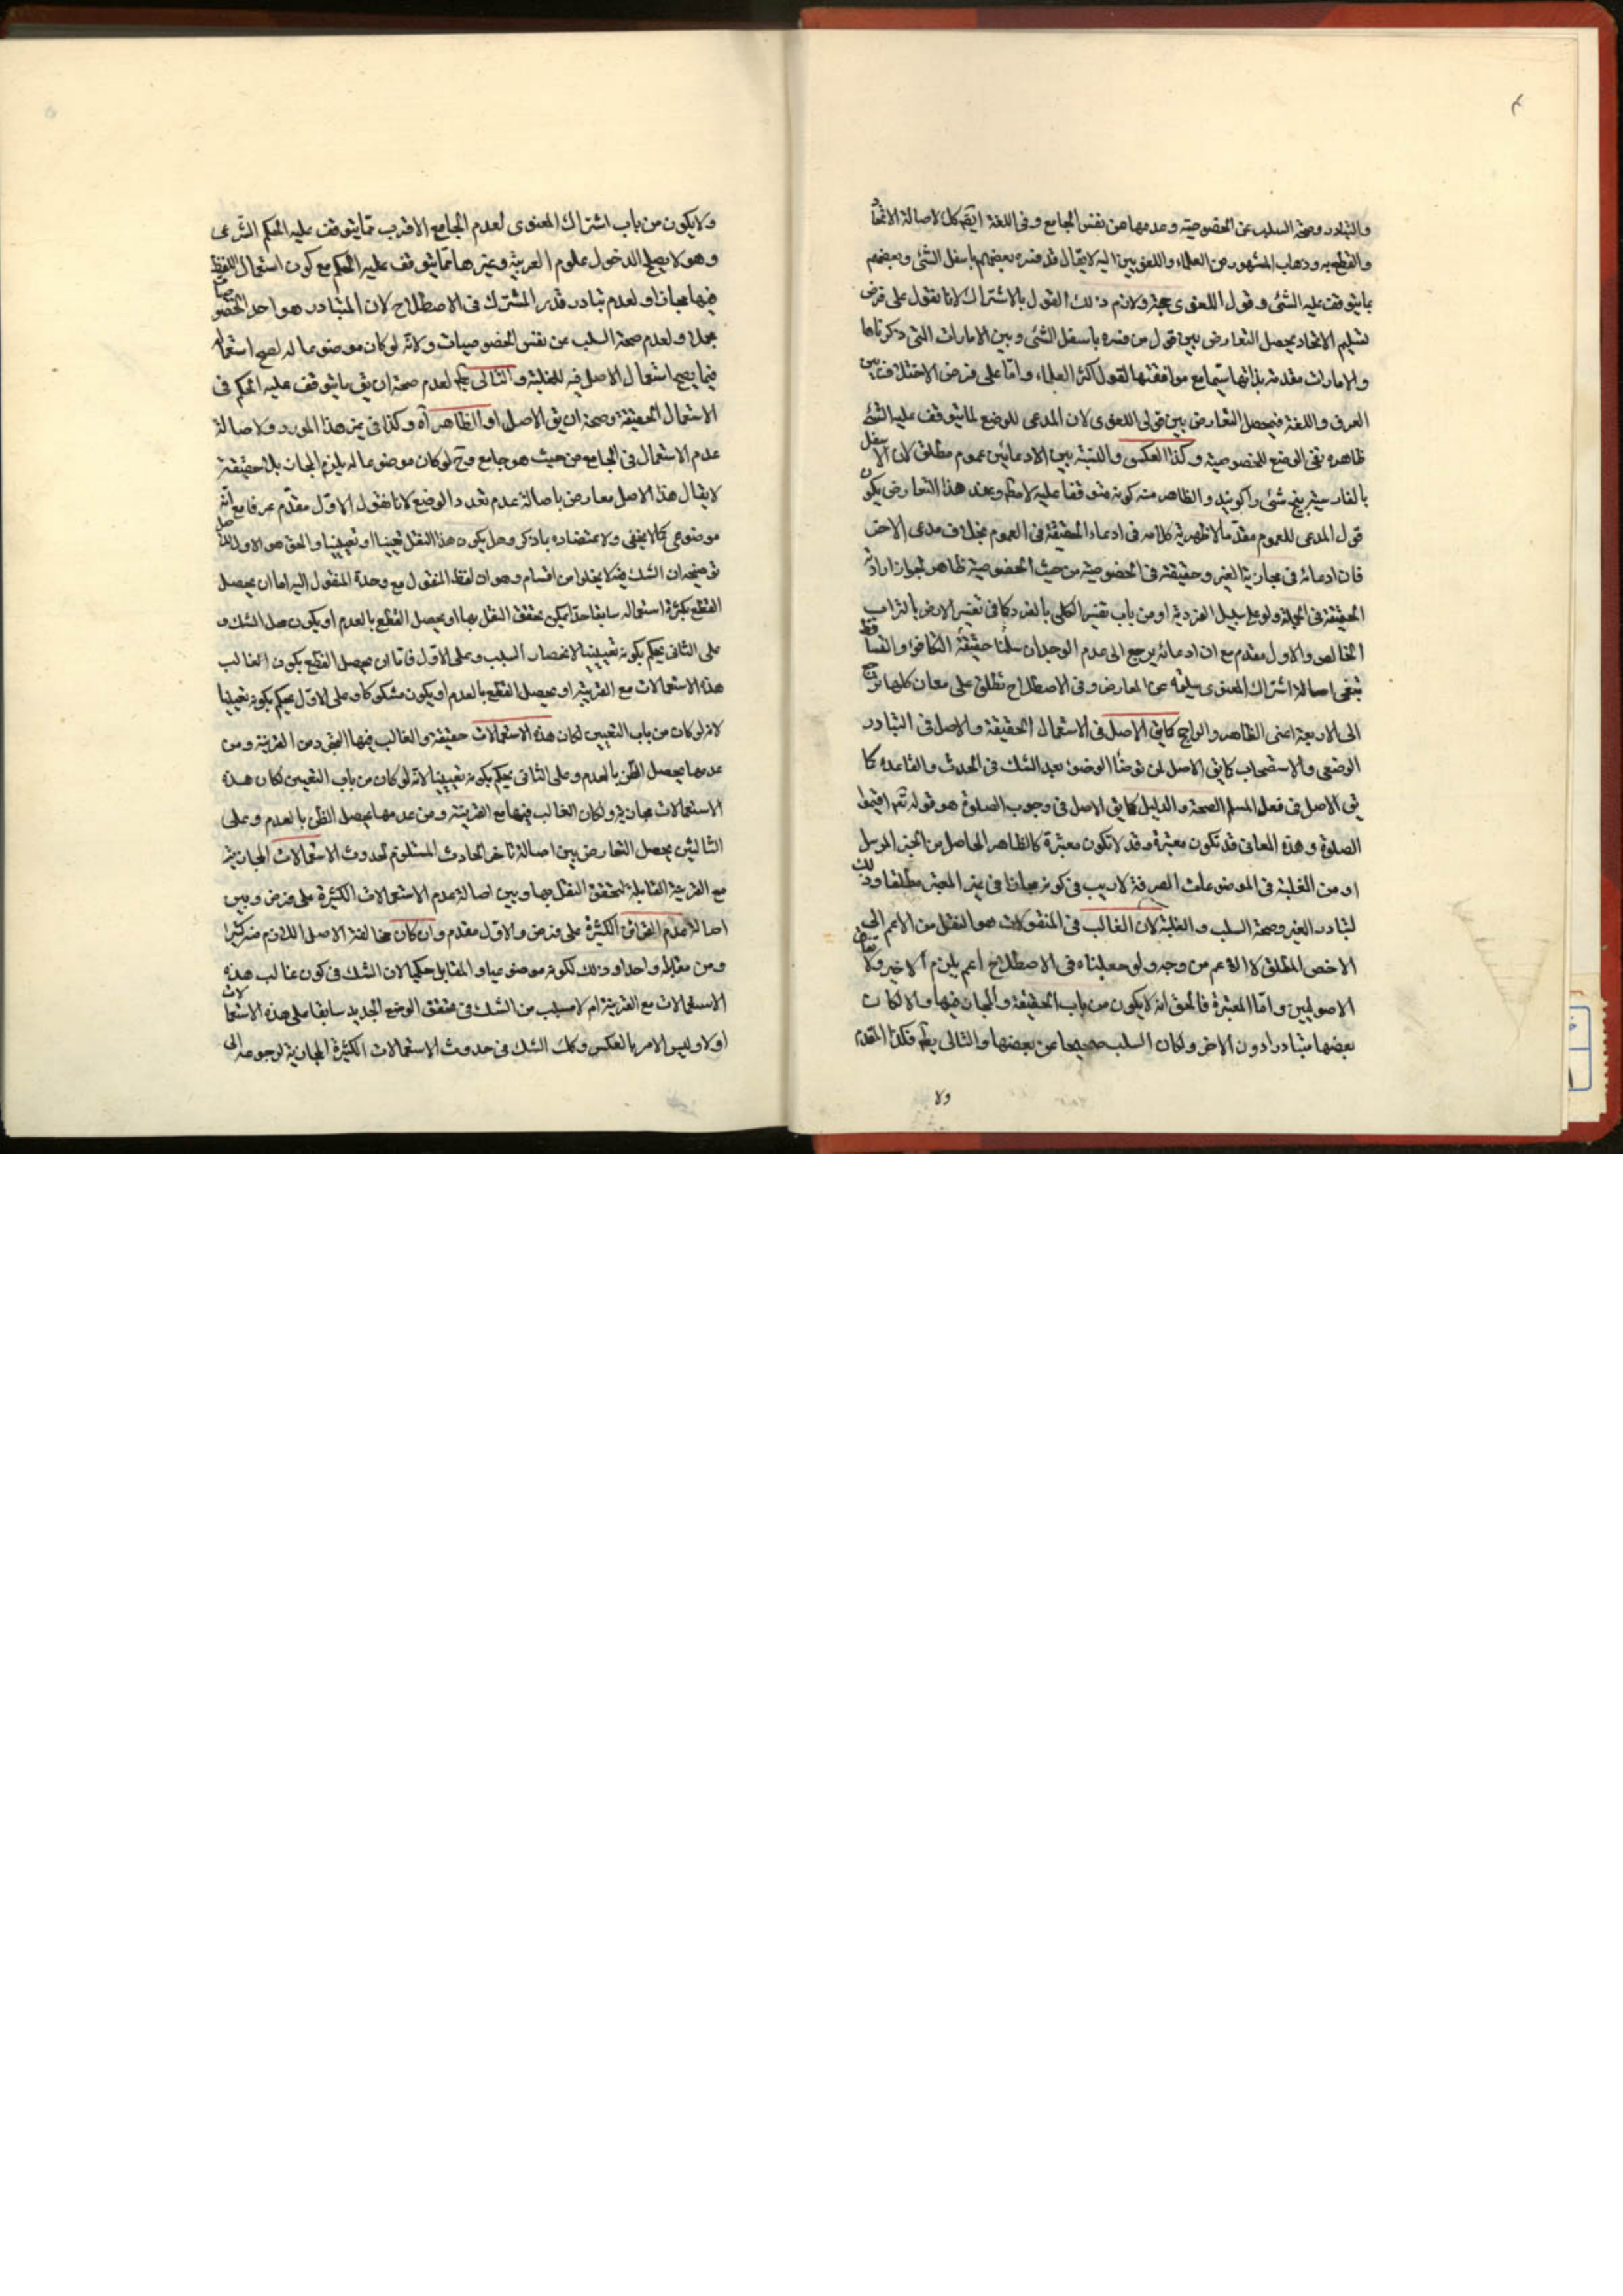 والتبادر وصحة السلب عن الخصوصية وعدمها عن نفس الجامع وفى اللغة ايضا كل لاصالة الاتحاد
والقطع به وذهاب المشهور من العلماء واللغويين اليه لا يقال قد فسره بعضهم باسفل الشئ وبعضهم
بما يتوقف عليه الشئ وقول اللغوى حجة ولازم ذلك القول بالاشتراك لانا نقول على فرض
تسليم الاتحاد يحصل التعارض بين قول من فسره باسفل الشئ وبين الامارات التى ذكرناها
والامارات مقدمة بذاتها سيما مع موافقتها لقول اكثر العلماء واما على فرض الاختلاف بين
العرف واللغة فيحصل التعارض بين قولى اللغوى لان المدعى للوضع لما يتوقف عليه الشئ
ظاهره نفى الوضع للخصوصية وكذا العكس والنسبة بين الادعائين عموم مطلق لان الاسفل
بالفارسية بيخ شئ را كويند والظاهر منه كونه متوقفا عليه لا مطلقا وعند هذا التعارض يكون
قول المدعى للعموم مقدما لاظهرية كلامه فى ادعاء الحقيقة فى العموم بخلاف مدعى الاخص
فان ادعائه فى مجازية الغير وحقيقته فى الخصوصية من حيث الخصوصية ظاهر لجواز ارادته
الحقيقة فى الجملة ولو على سبيل الفردية او من باب تفسير الكلى بالفرد كما فى تفسير الارض بالتراب
الخالص والاول مقدم مع ان ادعائه يرجع الى عدم الوجدان سلمنا حقيقة التكافؤ والتساقط
تبقى اصالة اشتراك المعنوى سليمة عن المعارض وفى الاصطلاح تطلق على معان كلها ترجع
الى الاربعة اعنى الظاهر والراجح كما يق الاصل فى الاستعمال الحقيقة والاصل فى التبادر
الوضعى والاستصحاب كما يق الاصل لمن توضأ الوضوء بعد الشك فى الحدث والقاعدة كما
يق الاصل فى فعل المسلم الصحة والدليل كما يق الاصل فى وجوب الصلوة هو قوله تعم اقيموا
الصلوة وهذه المعانى قد تكون معتبرة وقد لا تكون معتبرة كالظاهر الحاصل من الخبر المرسل
او من الغلبة فى الموضوعات الصرفة لا ريب فى كونه مجازا فى غير المعتبر مطلقا وذلك
لتبادر الغير وصحة السلب والغلبة لان الغالب فى المنقولات هو النقل من الاعم الى
الاخص المطلق لا الاعم من وجه ولو جعلناه فى الاصطلاح اعم يلزم الاخير ولا
الاصوليين واما المعتبرة فالحق انه لا يكون من باب الحقيقة والمجاز فيها والا لكان
بعضها متبادرا دون الاخر ولكان السلب صحيحا عن بعضها والتالى بط فكذا المقدم
ولا
ولا يكون من باب اشتراك المعنوى لعدم الجامع الاقرب مما يتوقف عليه الحكم الشرعى
وهو لا يصلح لدخول علوم العربية وغيرها مما يتوقف عليه الحكم مع كون استعمال اللفظ
فيها مجازا ولعدم تبادر قدر المشترك فى الاصطلاح لان المتبادر هو احد الخصوصيات
مجملا ولعدم صحة السلب عن نفس الخصوصيات ولانه لو كان موضوعا له لصح استعماله
فيما يصح استعمال الاصل فيه للغلبة والتالى بط لعدم صحة ان يق ما يتوقف عليه الحكم فى
الاستعمال الحقيقة وصحة ان يق الاصل او الظاهر آه وكذا فى غير هذا المورد ولاصالة
عدم الاستعمال فى الجامع من حيث هو جامع وح لو كان موضوعا له يلزم المجاز بلا حقيقة
لا يقال هذا الاصل معارض باصالة عدم تعدد الوضع لانا نقول الاول مقدم عرفا مع انه
موضوعى كما لا يخفى ولاعتضاده بما ذكر وهل يكون هذا النقل تعينيا او تعيينيا والحق هو الاول
توضيحه ان الشك فيه لا يخلو من اقسام وهو ان لفظ المنقول مع وحدة المنقول اليه اما ان يحصل
القطع بكثرة استعماله سابقا حدا يمكن تحقق النقل بها او يحصل القطع بالعدم او يكون محل الشك و
على الثانى يحكم بكونه تعيينيا لانحصار السبب وعلى الاول فاما ان يحصل القطع بكون الغالب
هذه الاستعمالات مع القرينة او يحصل القطع بالعدم او يكون مشكوكا وعلى الاول يحكم بكونه تعينيا
لانه لو كان من باب التعيين لكان هذه الاستعمالات حقيقة والغالب فيها التجرد من القرينة ومن
عدمها يحصل الظن بالعدم وعلى الثانى يحكم بكونه تعيينيا لانه لو كان من باب التعين لكان هذه
الاستعمالات مجازية ولكان الغالب فيها مع القرينة ومن عدمها يحصل الظن بالعدم وعلى
الثالثين يحصل التعارض بين اصالة تاخر الحادث المستلزم لحدوث الاستعمالات المجازية
مع القرينة القابلة لتحقق النقل بها وبين اصالة عدم الاستعمالات الكثيرة على فرض وبين
اصالة عدم القرائن الكثيرة على فرض والاول مقدم وان كان مخالفة الاصل اللازم منه كثيرا
ومن مقابله واحدا وذلك لكونه موضوعيا والمقابل حكميا لان الشك فى كون غالب هذه
الاستعمالات مع القرينة ام لا مسبب من الشك فى تحقق الوضع الجديد سابقا على هذه الاستعمالات
اولا وليس الامر بالعكس وكك الشك فى حدوث الاستعمالات الكثيرة المجازية لرجوعه الى